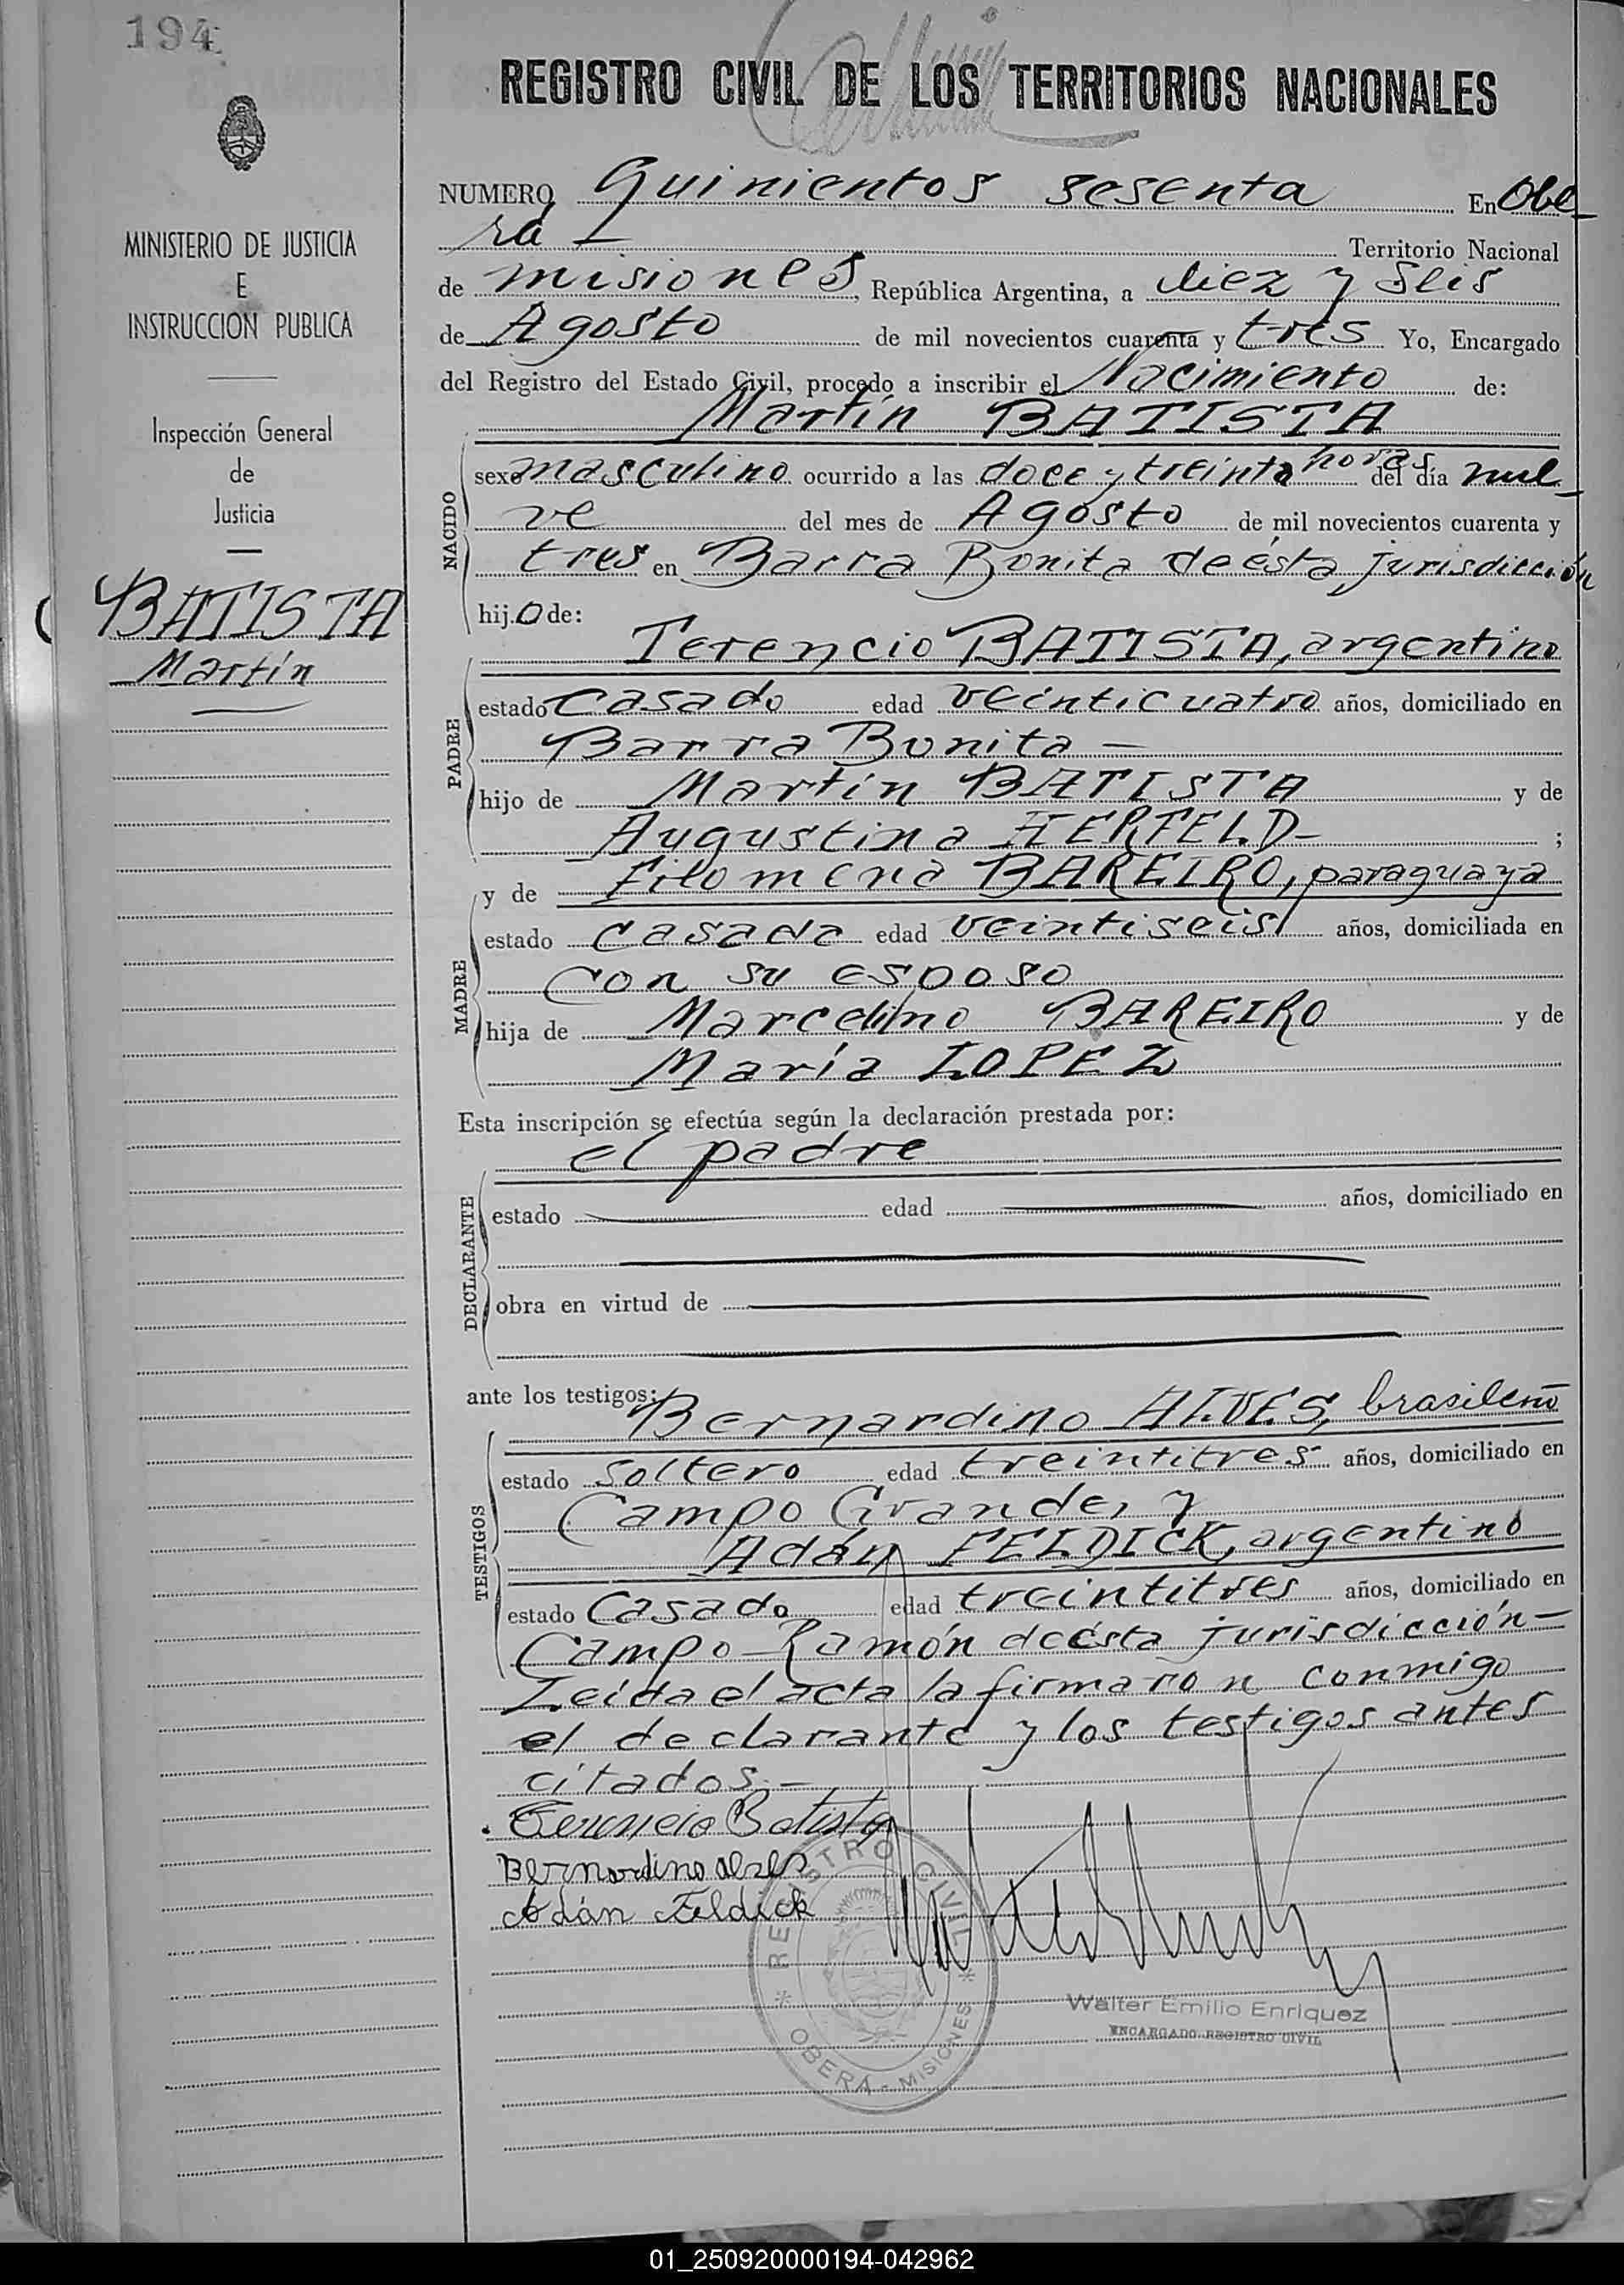 194
REGISTRO CIVIL DE LOS TERRITORIOS NACIONALES
MINISTERIO DE JUSTICIA
E
INSTRUCCION PUBLICA
Inspección General
de
Justicia
BATISTA
Martín
NUMERO Quinientos sesenta En Obe-
rá - Territorio Nacional
de misiones, República Argentina, a diez y seis
de Agosto de mil novecientos cuarenta y tres Yo, Encargado
del Registro del Estado Civil, procedo a inscribir el Nacimiento de:
Martín BATISTA
NACIDO
sexo masculino ocurrido a las doce y treinta horas del día nue-
ve del mes de Agosto de mil novecientos cuarenta y
tres en Barra Bonita de ésta jurisdicción
hijo de:
PADRE
Terencio BATISTA, argentino
estado casado edad veinticuatro años, domiciliado en
Barra Bonita -
hijo de Martín BATISTA y de
Augustina HERFELD- ;
MADRE
y de Filomena BAREIRO, paraguaya
estado casada edad veintiseis años, domiciliada en
con su esposo
hija de Marcelino BAREIRO y de
María LOPEZ
Esta inscripción se efectúa según la declaración prestada por:
el padre
DECLARANTE
estado edad años, domiciliado en
obra en virtud de
ante los testigos:
TESTIGOS
Bernardino ALVES, brasileño
estado soltero edad treintitres años, domiciliado en
Campo Grande, y
Adán FELDICK, argentino
estado casado edad treintitres años, domiciliado en
Campo Ramón de ésta jurisdicción-
Leída el acta la firmaron conmigo
el declarante y los testigos antes
citados.-
Terencio Batista
Bernardino alves
Adán Feldick
REGISTRO CIVIL
OBERÁ - MISIONES
Walter Emilio Enriquez
ENCARGADO REGISTRO CIVIL
01_250920000194-042962